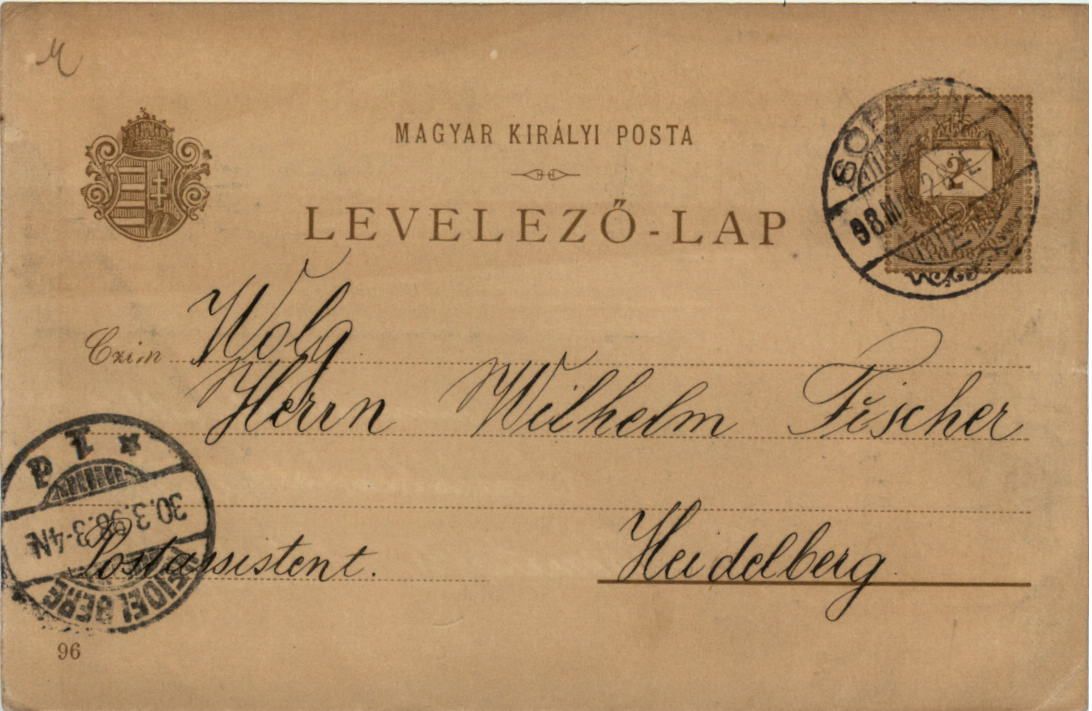 MAGYAR KIRÁLYI POSTA
LEVELEZŐ-LAP
SOPRON
98.III
2
Czim
Wolg
Herrn Wilhelm Fischer
Postassistent.
Heidelberg
HEIDELBERG
30.3.98.3-4N
* 1 d
96